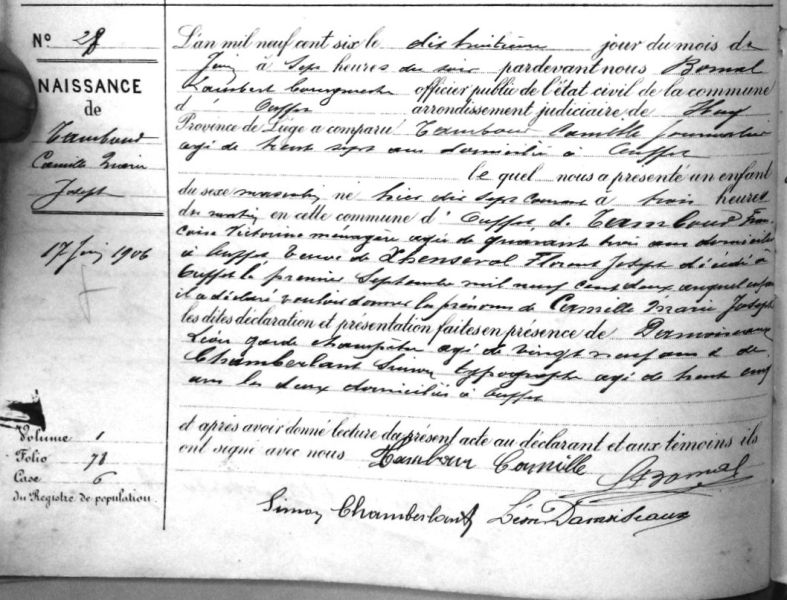 N° 28
NAISSANCE
de
Tambour
Camille Marie
Joseph
17 Juin 1906
Volume 1
Folio 78
Case 6
du Registre de population.
L'an mil neuf cent six le dix huitième jour du mois de
Juin à Sept heures du soir pardevant nous Bomal
Lambert bourgmestre officier public de l'état civil de la commune
d' Ouffet arrondissement judiciaire de Huy
Province de Liége a comparu Tambour Camille journalier
agé de trente sept ans domicilié à Ouffet
le quel nous a présenté un enfant
du sexe masculin né hier dix sept courant à trois heures
du matin en cette commune d' Ouffet, de Tambour Fran
coise Victorine ménagère agée de quarante trois ans domiciliée
à Ouffet Veuve de Thenseval Florent Joseph décédé à
Ouffet le premier Septembre mil neuf cent deux auquel enfant
il a déclaré vouloir donner les prénoms de Camille Marie Joseph
les dites déclaration et présentation faites en présence de Damoiseaux
Léon garde champêtre agé de vingt neuf ans & de
Chamberlant Simon typographe agé de trente cinq
ans les deux domiciliés à Ouffet
et après avoir donné lecture du présent acte au déclarant et aux témoins ils
ont signé avec nous Tambour Camille LBomal
Simon Chamberlant Léon Damoiseaux